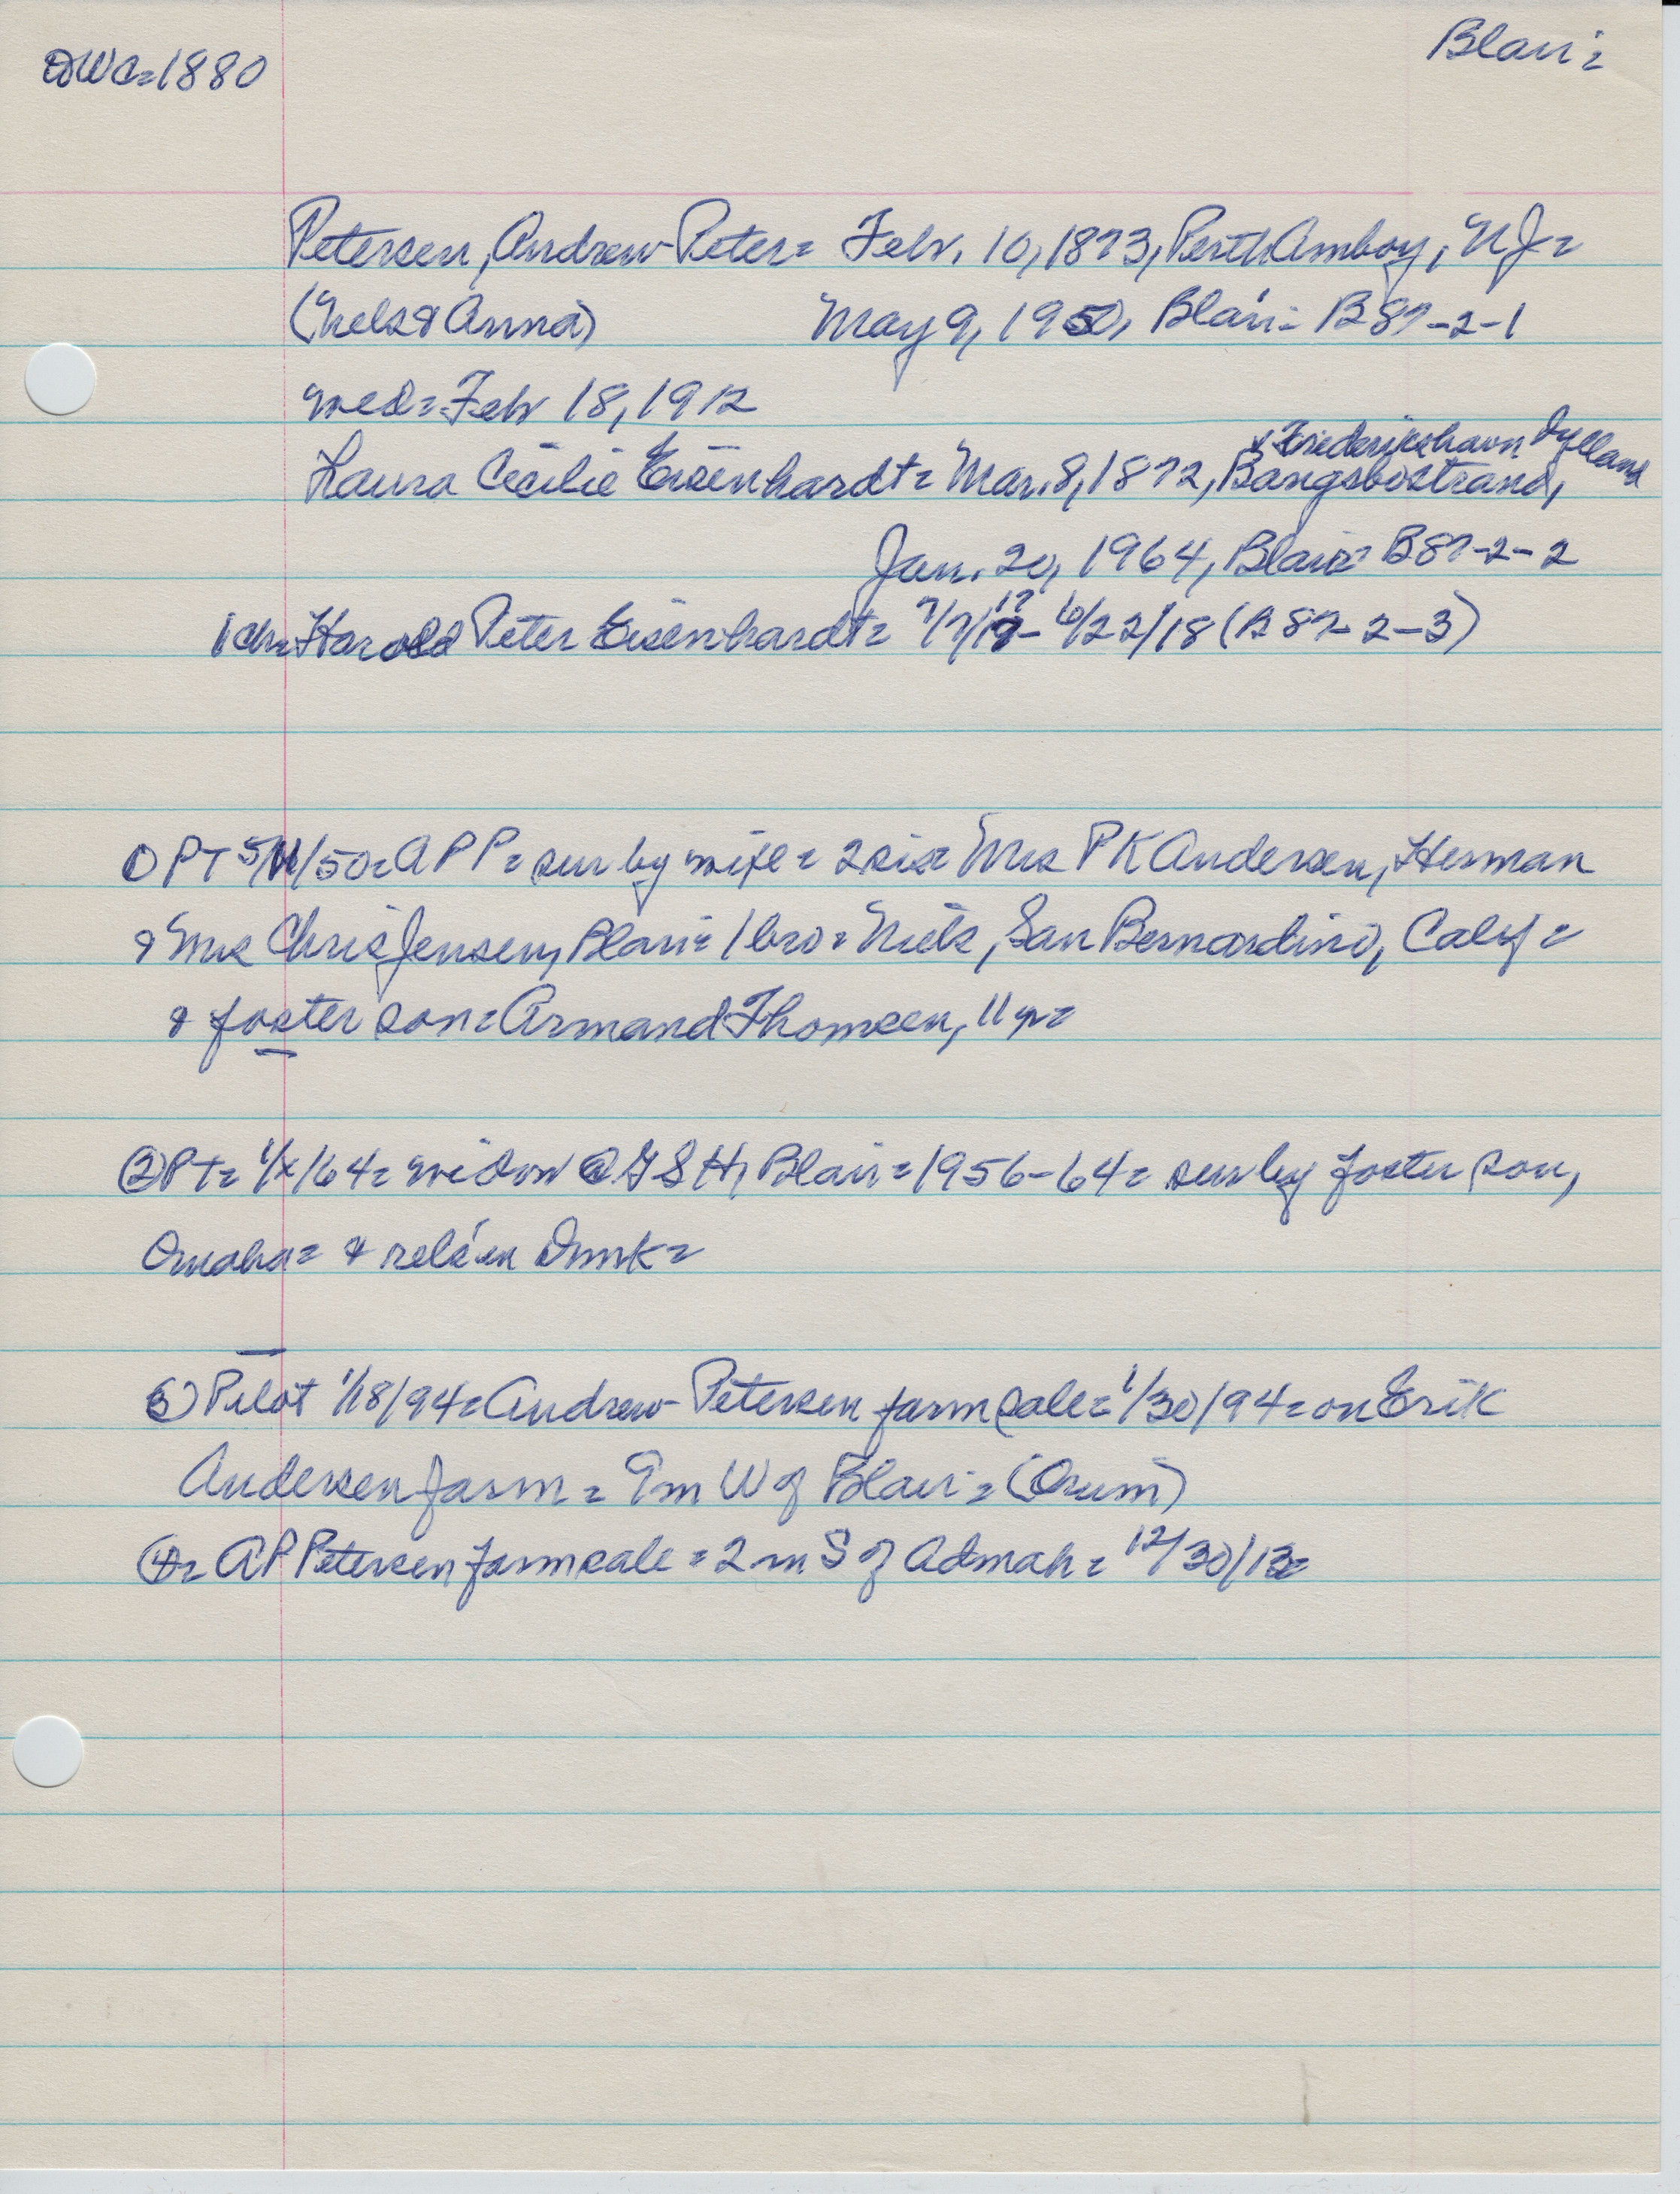 DWC=1880
Blair=
Petersen, Andrew Peter= Febr. 10, 1873, Perth Amboy, NJ=
(Nels & Anna) May 9, 1950, Blair= B87-2-1
med= Febr 18, 1912
& Friederikshavn Jylland
Laura Cecilie Eisenhardt= Mar. 8, 1872, Bangsbostrand,
Jan. 20, 1964, Blair= B87-2-2
1 ch= Harold Peter Eisenhardt= 7/7/17- 6/22/18 (B87-2-3)
① PT 5/11/50= APP= sur by wife= 2 sis= Mrs PK Andersen, Herman
& Mrs Chris Jensen, Blair= 1 bro= Niels, San Bernardino, Calif=
& foster son= Armand Thomsen, 11 yr=
② PT= 1/x/64= widow @ GSH, Blair= 1956-64= sur by foster son,
Omaha= & rels in Dmk=
③ Pilot 1/18/94= Andrew Petersen farm sale= 1/30/94= on Erik
Andersen farm= 9m W of Blair= (Orum)
④= AP Petersen farm sale= 2 m S of Admah= 12/30/13=